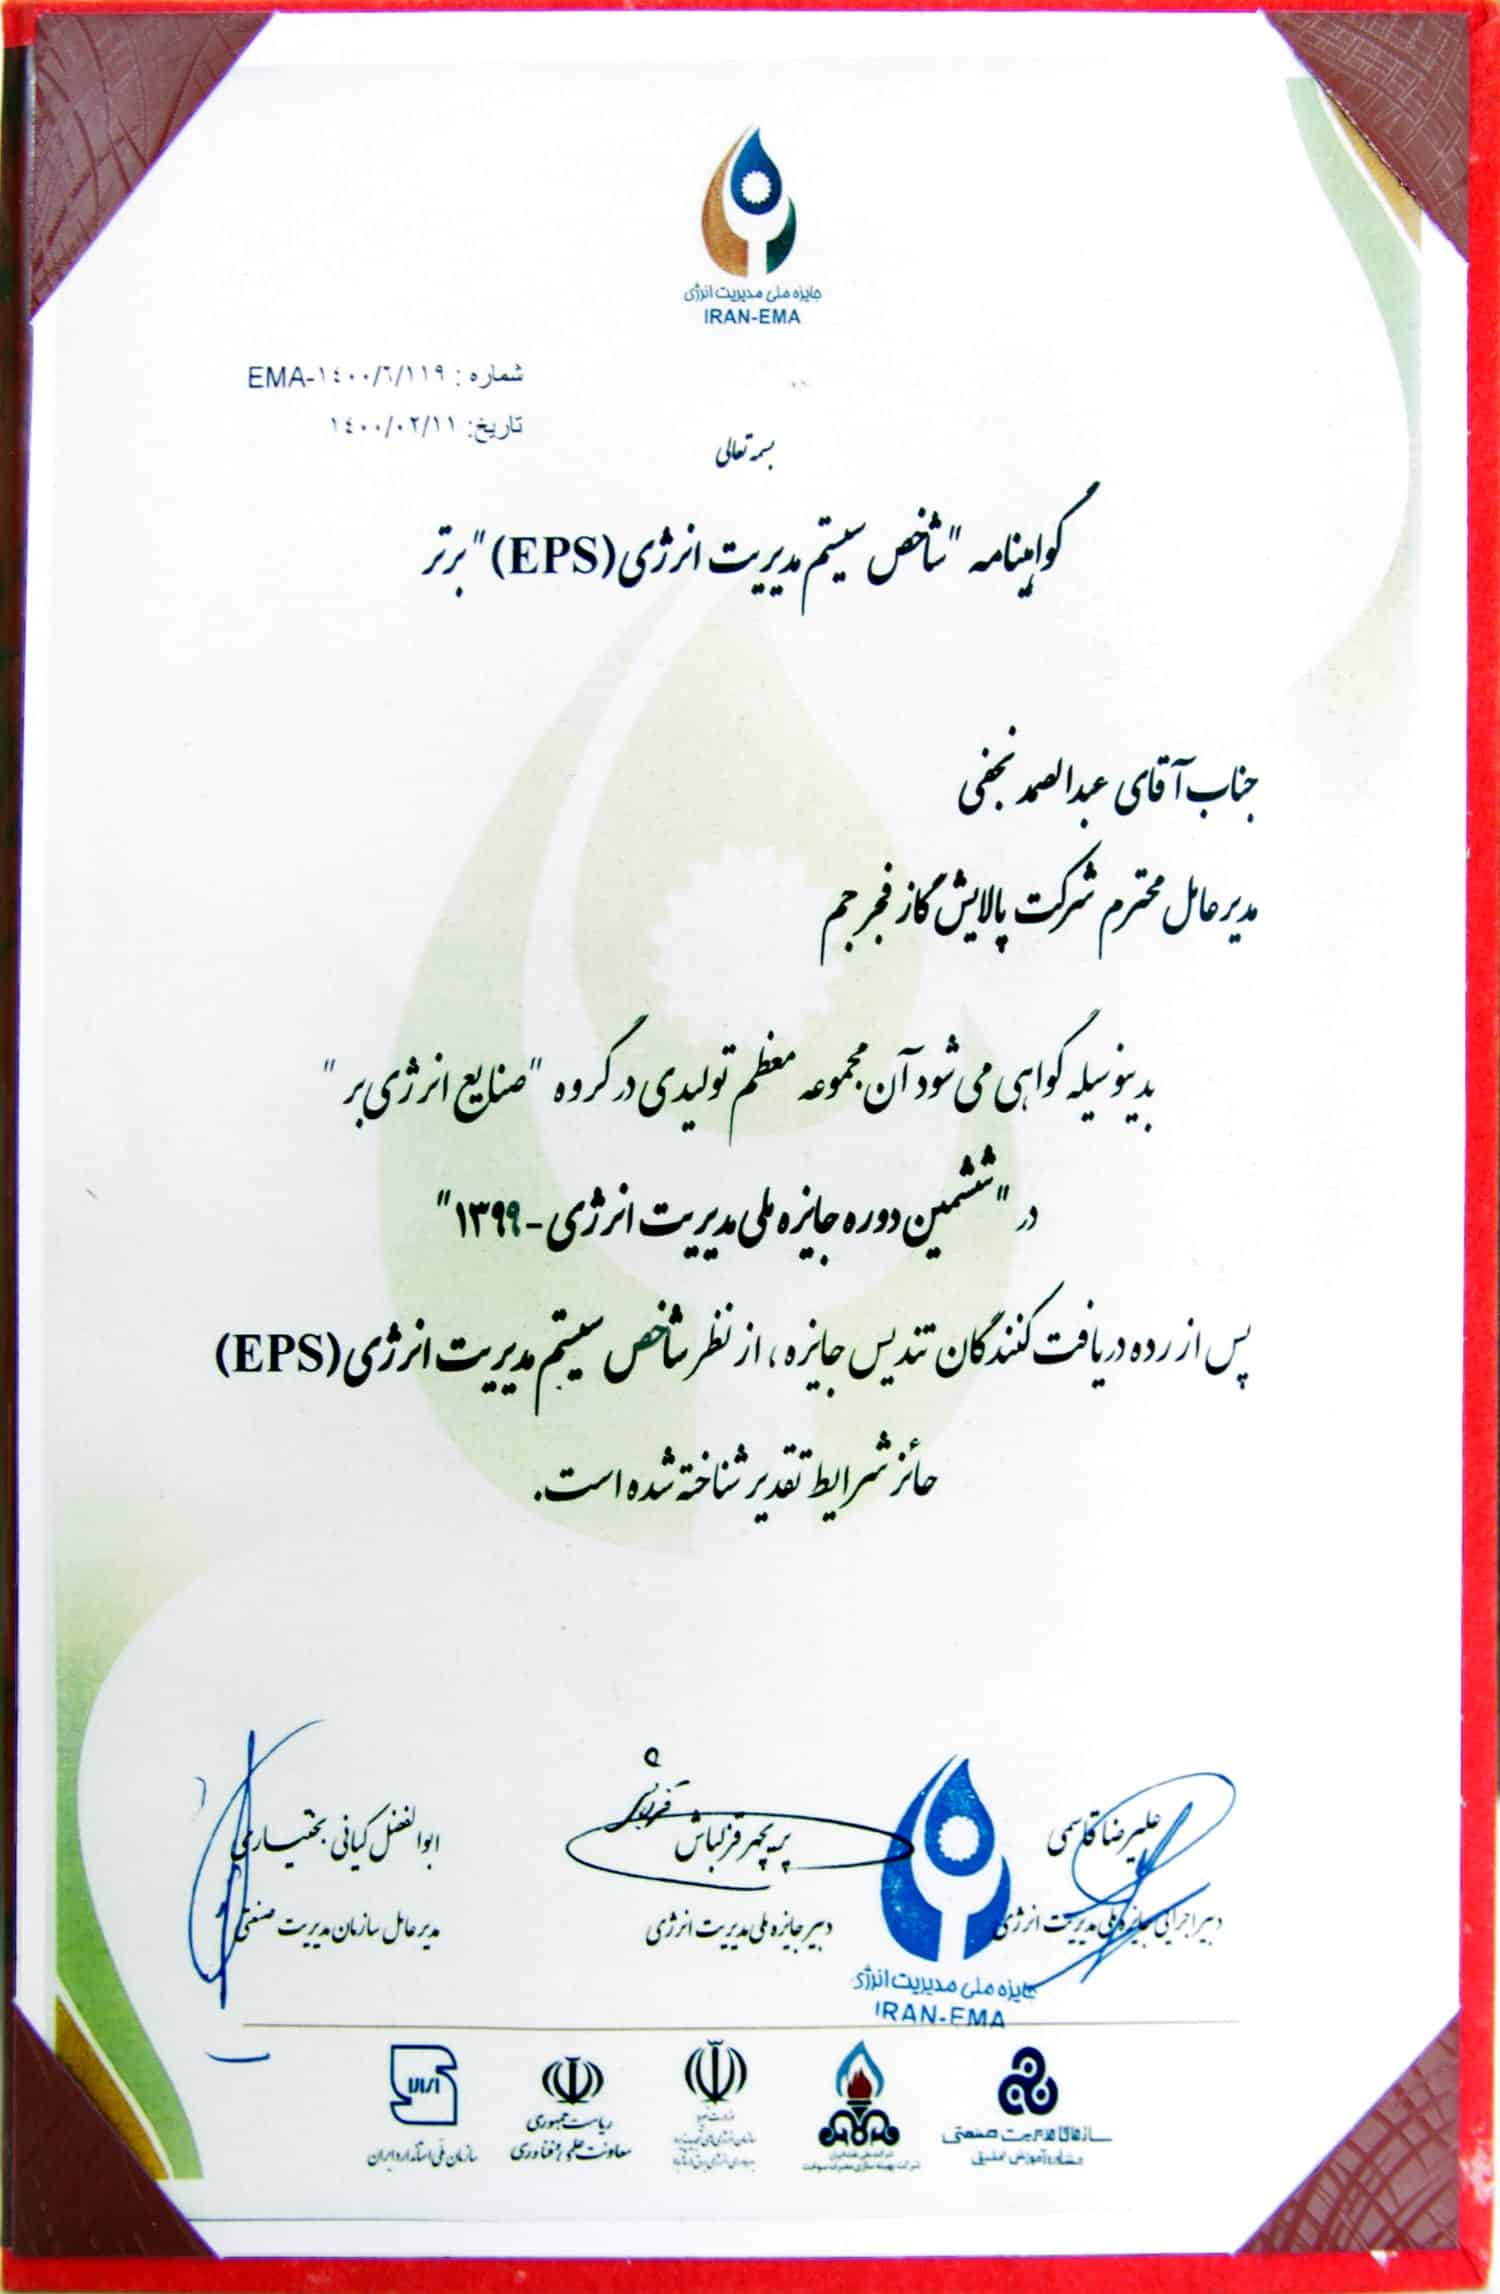 جایزه ملی مدیریت انرژی
IRAN-EMA
شماره : EMA-١٤٠٠/٦/١١٩
تاریخ: ١٤٠٠/٠٢/١١
بسمه تعالی
گواهینامه "شاخص سیستم مدیریت انرژی (EPS)" برتر
جناب آقای عبدالصمد نجفی
مدیرعامل محترم شرکت پالایش گاز فجر جم
بدینوسیله گواهی می شود آن مجموعه معظم تولیدی در گروه "صنایع انرژی بر"
در "ششمین دوره جایزه ملی مدیریت انرژی - ۱۳۹۹"
پس از رده دریافت کنندگان تندیس جایزه، از نظر شاخص سیستم مدیریت انرژی (EPS)
حائز شرایط تقدیر شناخته شده است.
علیرضا قاسمی
دبیر اجرائی جایزه ملی مدیریت انرژی
پریچهر قزلباش
دبیر جایزه ملی مدیریت انرژی
ابوالفضل کیانی بختیاری
مدیرعامل سازمان مدیریت صنعتی
جایزه ملی مدیریت انرژی
IRAN-EMA
سازمان مدیریت صنعتی
مشاوره آموزش تحقیق
شرکت ملی نفت ایران
شرکت بهینه سازی مصرف سوخت
وزارت نیرو
ریاست جمهوری
معاونت علمی و فناوری
سازمان ملی استاندارد ایران